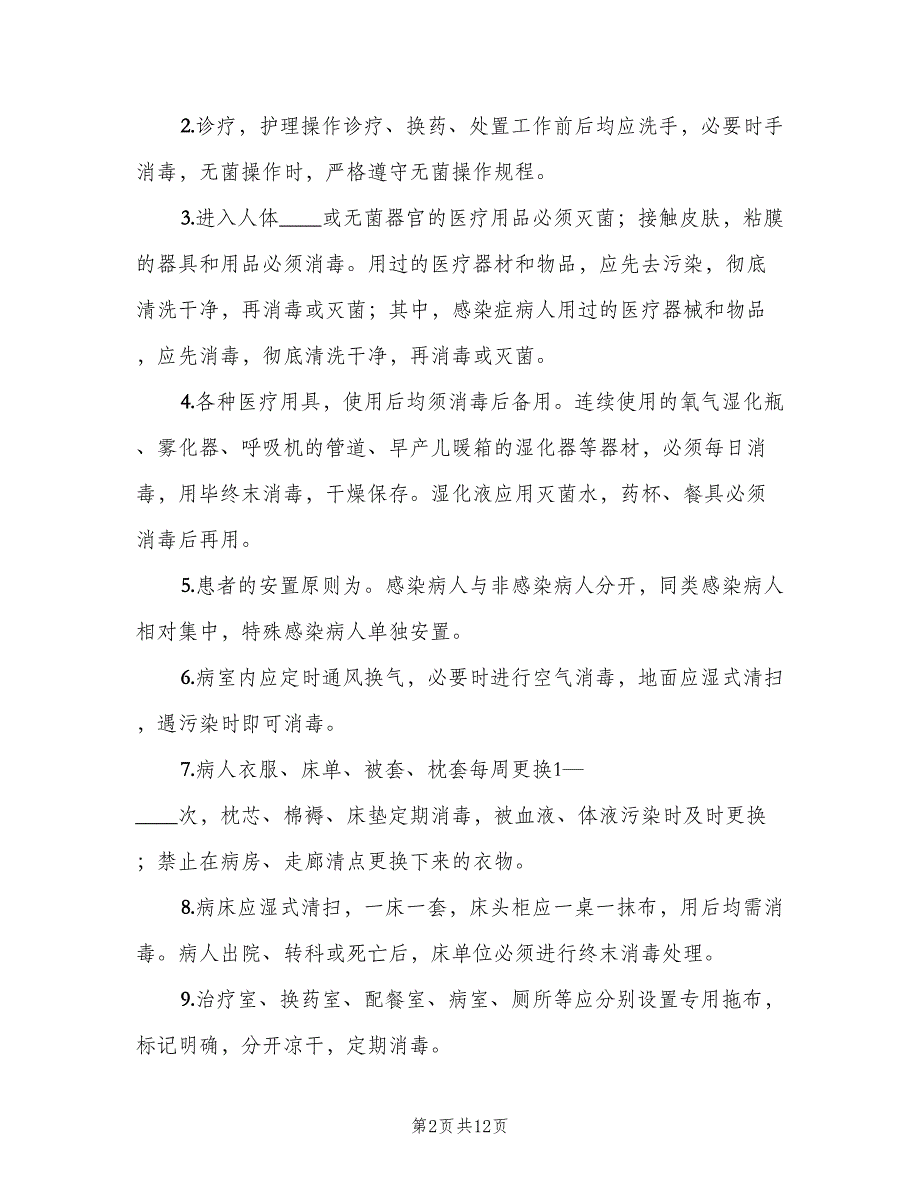 2.诊疗，护理操作诊疗、换药、处置工作前后均应洗手，必要时手
消毒，无菌操作时，严格遵守无菌操作规程。
3.进入人体____或无菌器官的医疗用品必须灭菌；接触皮肤，粘膜
的器具和用品必须消毒。用过的医疗器材和物品，应先去污染，彻底
清洗干净，再消毒或灭菌；其中，感染症病人用过的医疗器械和物品
，应先消毒，彻底清洗干净，再消毒或灭菌。
4.各种医疗用具，使用后均须消毒后备用。连续使用的氧气湿化瓶
、雾化器、呼吸机的管道、早产儿暖箱的湿化器等器材，必须每日消
毒，用毕终末消毒，干燥保存。湿化液应用灭菌水，药杯、餐具必须
消毒后再用。
5.患者的安置原则为。感染病人与非感染病人分开，同类感染病人
相对集中，特殊感染病人单独安置。
6.病室内应定时通风换气，必要时进行空气消毒，地面应湿式清扫
，遇污染时即可消毒。
7.病人衣服、床单、被套、枕套每周更换1—
____次，枕芯、棉褥、床垫定期消毒，被血液、体液污染时及时更换
；禁止在病房、走廊清点更换下来的衣物。
8.病床应湿式清扫，一床一套，床头柜应一桌一抹布，用后均需消
毒。病人出院、转科或死亡后，床单位必须进行终末消毒处理。
9.治疗室、换药室、配餐室、病室、厕所等应分别设置专用拖布，
标记明确，分开凉干，定期消毒。
第2页共12页